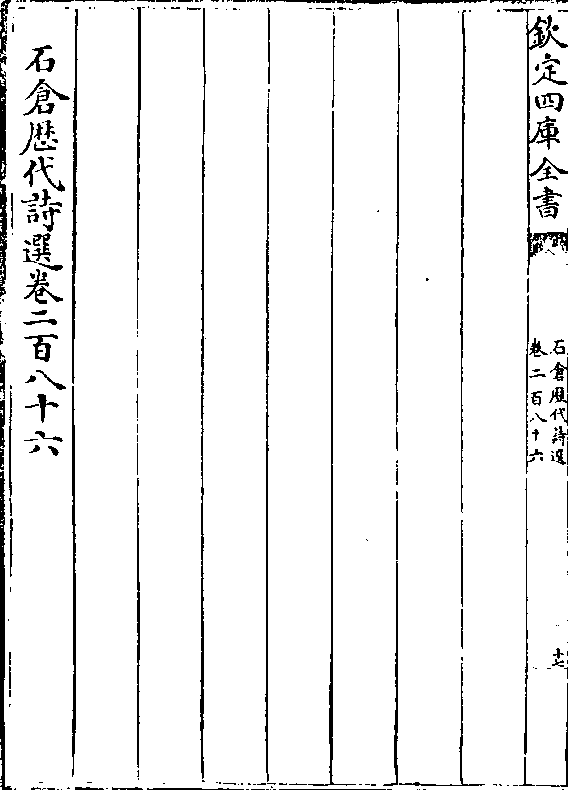 欽定四庫全書
石倉歴代詩選
卷二百八十六
十七
石倉歴代詩選卷二百八十六